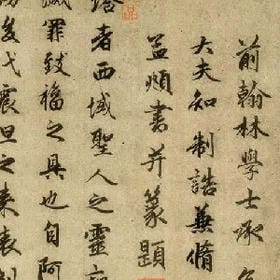 前翰林學士承
大夫知制誥兼脩
孟頫書并篆題
者西域聖人之靈
滅罪致福之具也自阿
後代震旦之来表